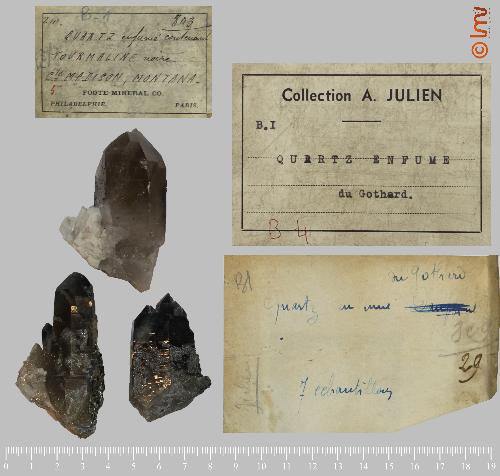 B-8
803
QUARTZ enfumé contenant
TOURMALINE noire
Cté MADISON, MONTANA-
5
FOOTE MINERAL CO.
PHILADELPHIE. PARIS.
© lmv
Collection A. JULIEN
B.I
QUARTZ ENFUME
du Gothard.
B 4
du Gothard
Quartz
29
7 echantillons
0 1 2 3 4 5 6 7 8 9 10 11 12 13 14 15 16 17 18 19